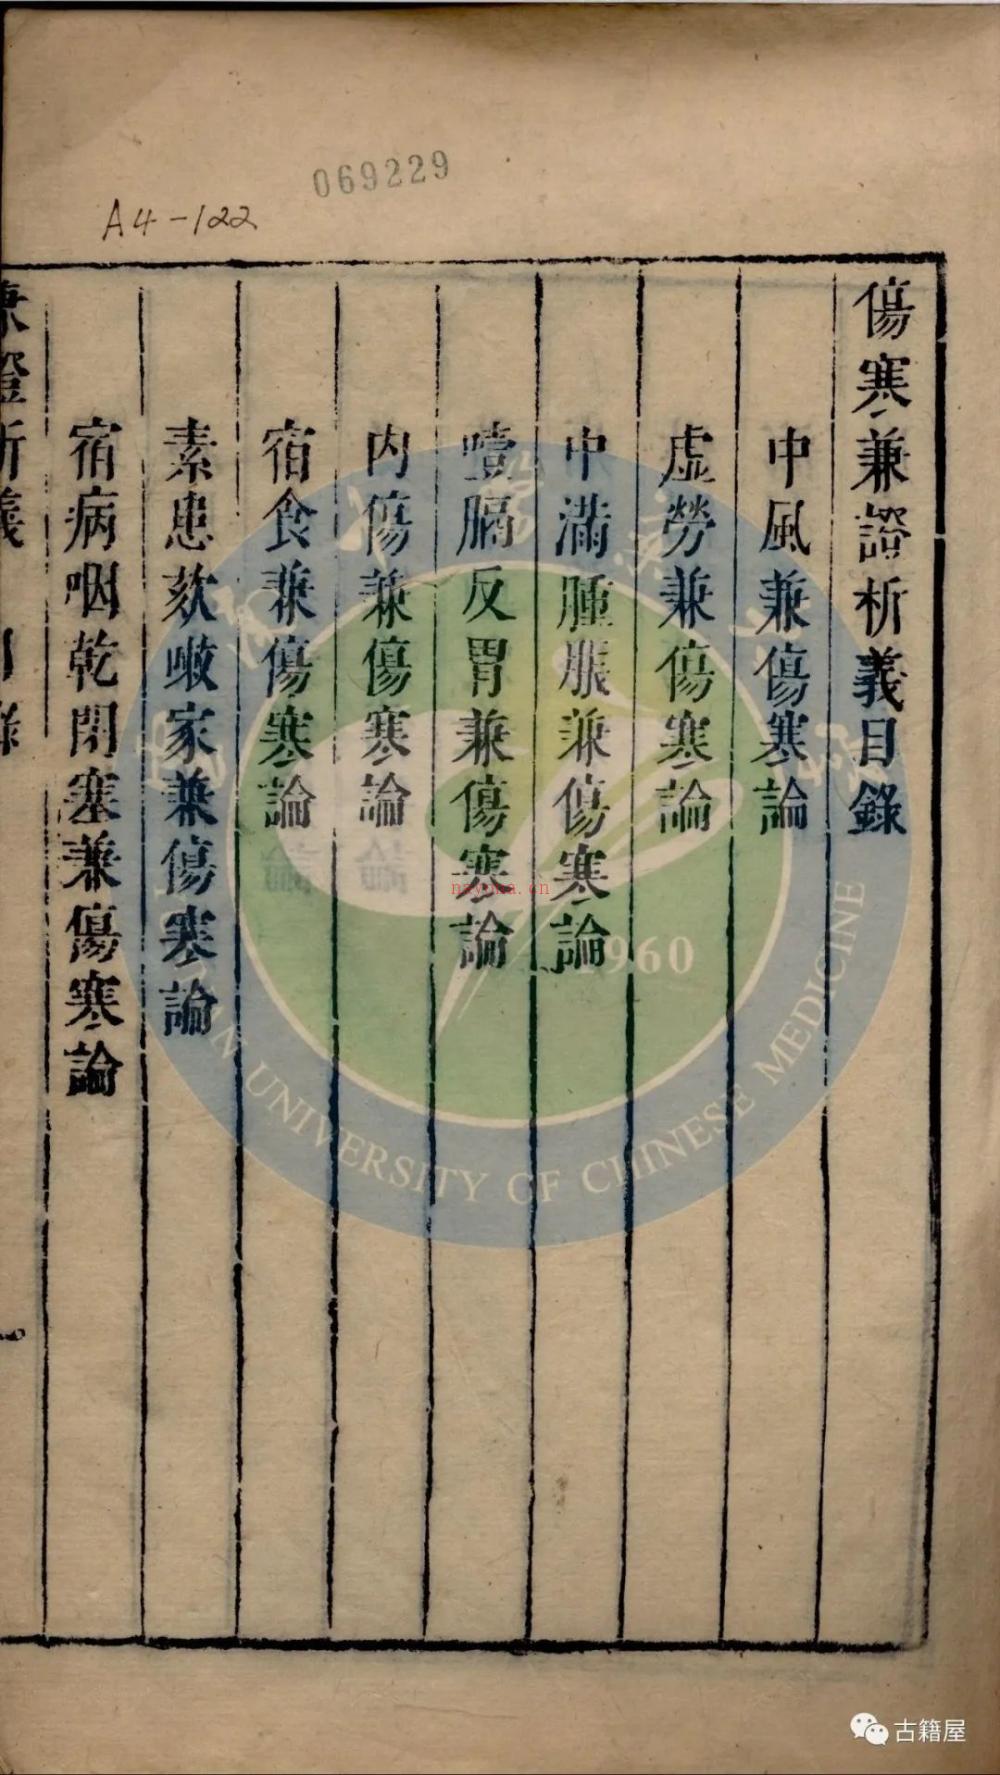 069229
A4-122
傷寒兼證析義目錄
中風兼傷寒論
虛勞兼傷寒論
中滿腫脹兼傷寒論
噎膈反胃兼傷寒論
內傷兼傷寒論
宿食兼傷寒論
素患欬嗽家兼傷寒論
宿病咽乾閉塞兼傷寒論
兼證析義
目錄
一
UNIVERSITY OF CHINESE MEDICINE
1960
nayona.cn
古籍屋